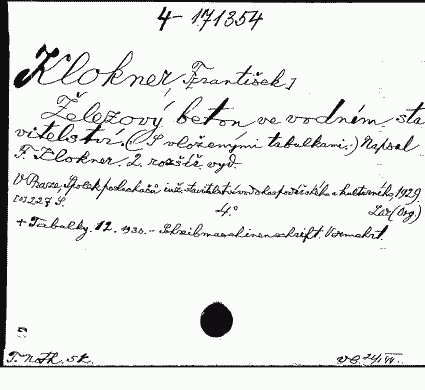 4-171354
Klokner, František]
Železový beton ve vodném sta
vitelství. (S vloženými tabulkami.) Napsal
F. Klokner. 2. rozšíř. vyd.
V Praze, Spolek posluchačů inž. stavitelství vodohospodářského a kulturního, 1929.
227 S. 4.°
+ Tabulky. 12. 1930. - Schreibmaschinenschrift. Vermehrt.